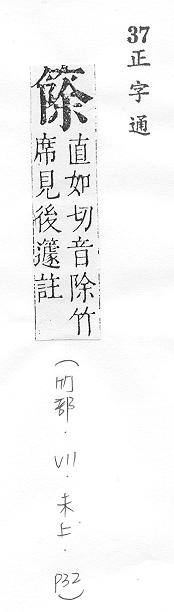 37正字通
篨
直如切音除竹
席見後籧註
(竹部．VII．未上．P32)